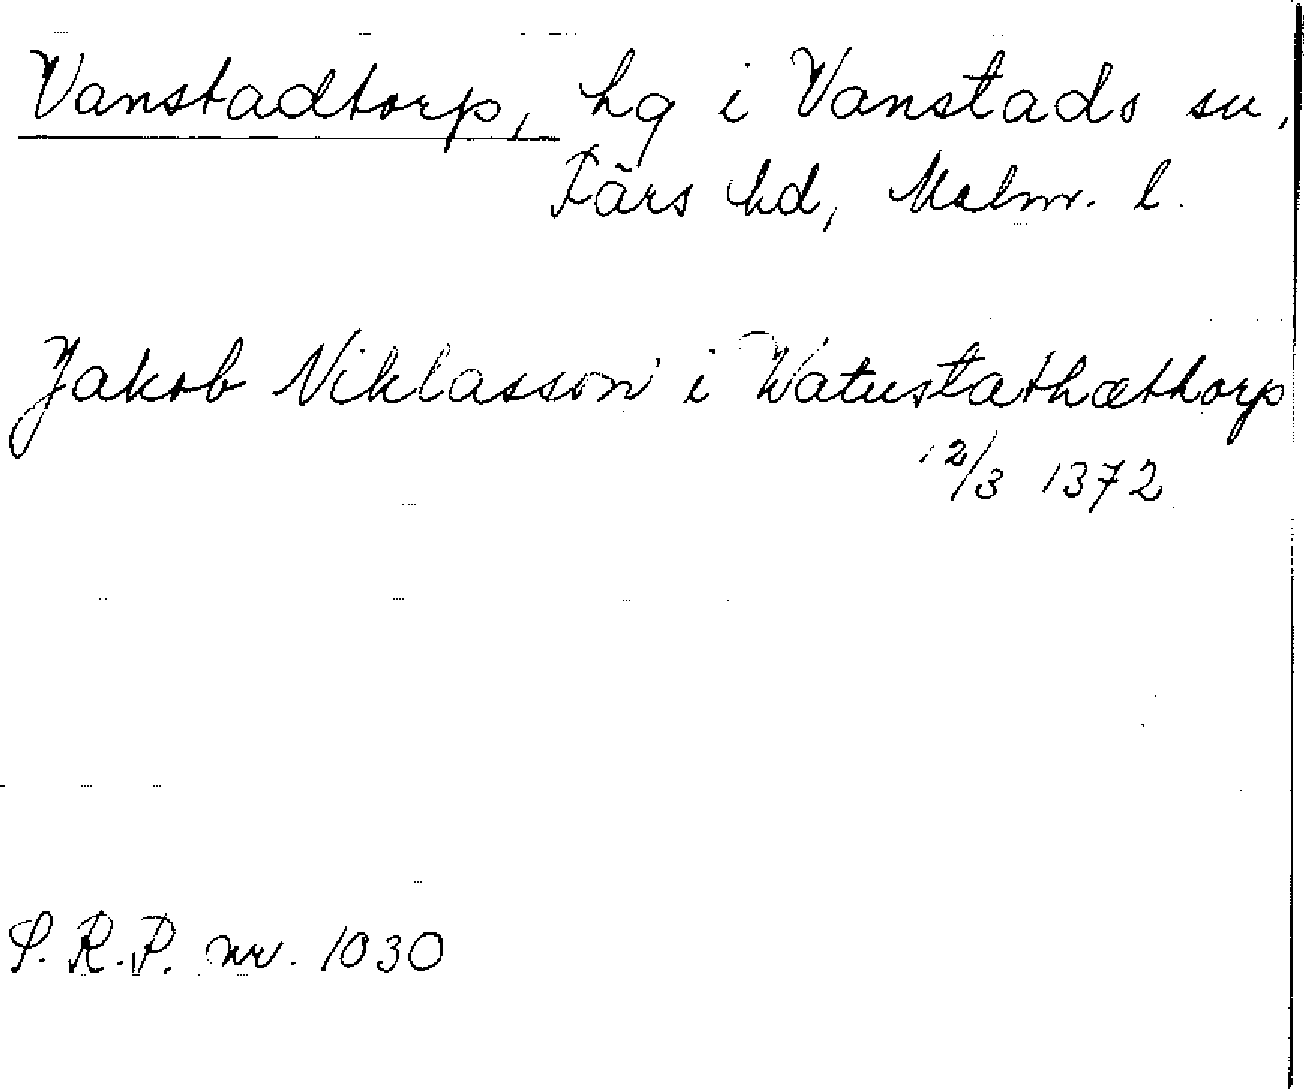 Vanstadtorp, hg i Vanstads sn,
Färs hd, Malm. l.
Jakob Niklasson i Watustathæthorp
12/3 1372
S.R.P. nr. 1030